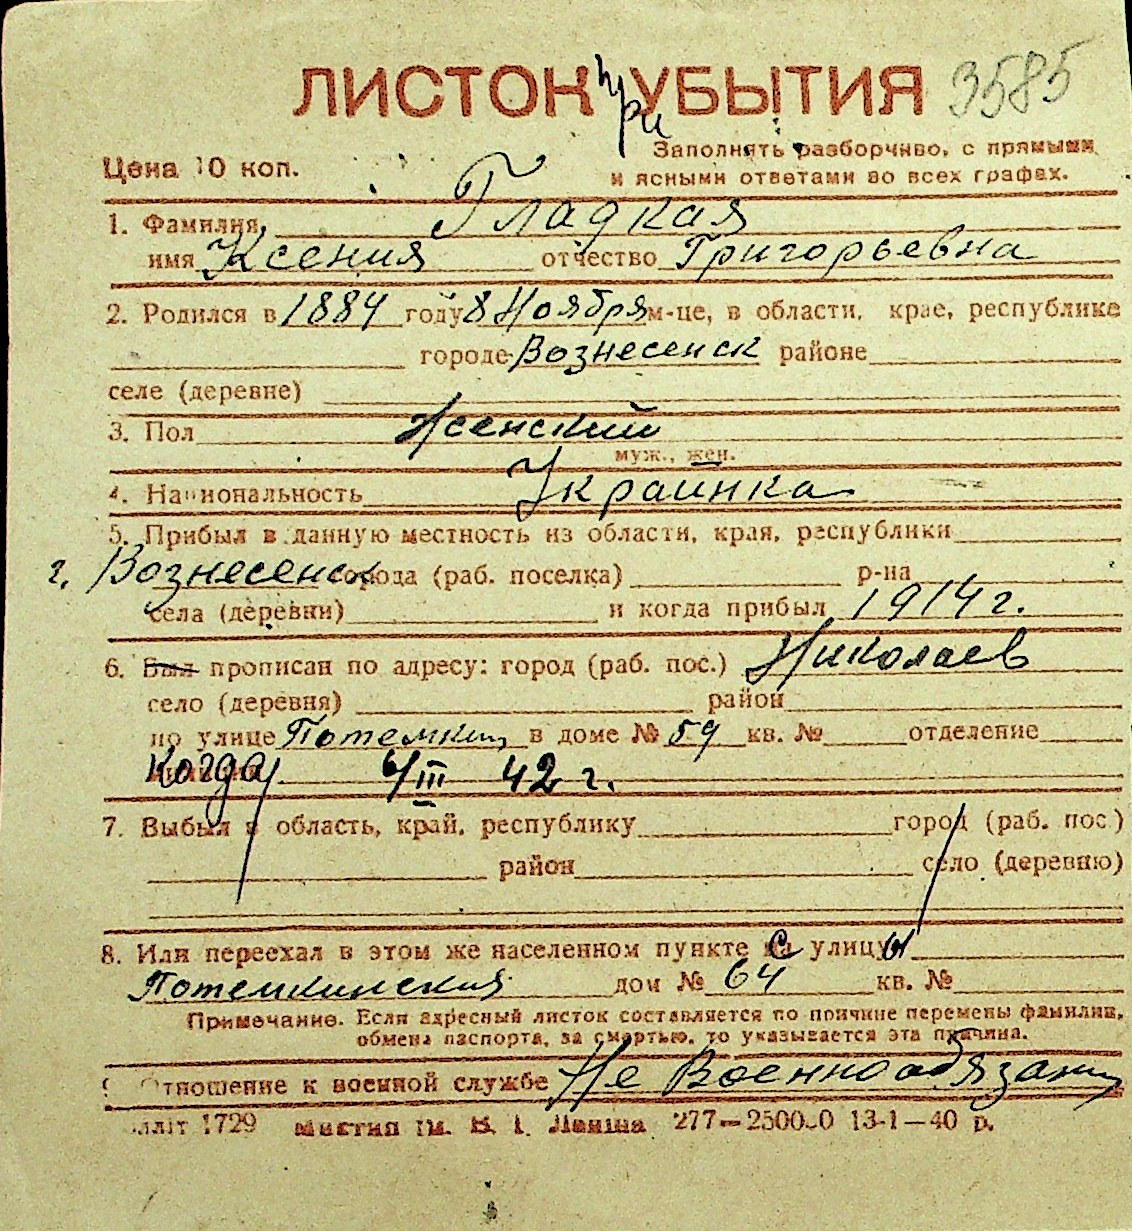 ЛИСТОК УБЫТИЯ при 3585
Цена 10 коп. Заполнять разборчиво, с прямыми
и ясными ответами во всех графах.
1. Фамилия Гладкая
имя Ксения отчество Григорьевна
2. Родился в 1884 году 8 Ноября м-це, в области, крае, республике
городе Вознесенск районе
селе (деревне)
3. Пол Женский
муж., жен.
4. Национальность Украинка
5. Прибыл в данную местность из области, края, республики
г. Вознесенск города (раб. поселка) р-на
села (деревни) и когда прибыл 1914 г.
6. Был прописан по адресу: город (раб. пос.) Николаев
село (деревня) район
по улице Потемкин в доме № 59 кв. № отделение
Когда 4/III 42 г.
7. Выбыл в область, край, республику город (раб. пос.)
район село (деревню)
8. Или переехал в этом же населенном пункте с улицы
Потемкинская дом № 64 кв. №
Примечание. Если адресный листок составляется по причине перемены фамилии,
обмена паспорта, за смертью, то указывается эта причина.
9. Отношение к военной службе Не Военнообязан
1729 ім. В. І. Леніна 277—250000 13-1—40 р.